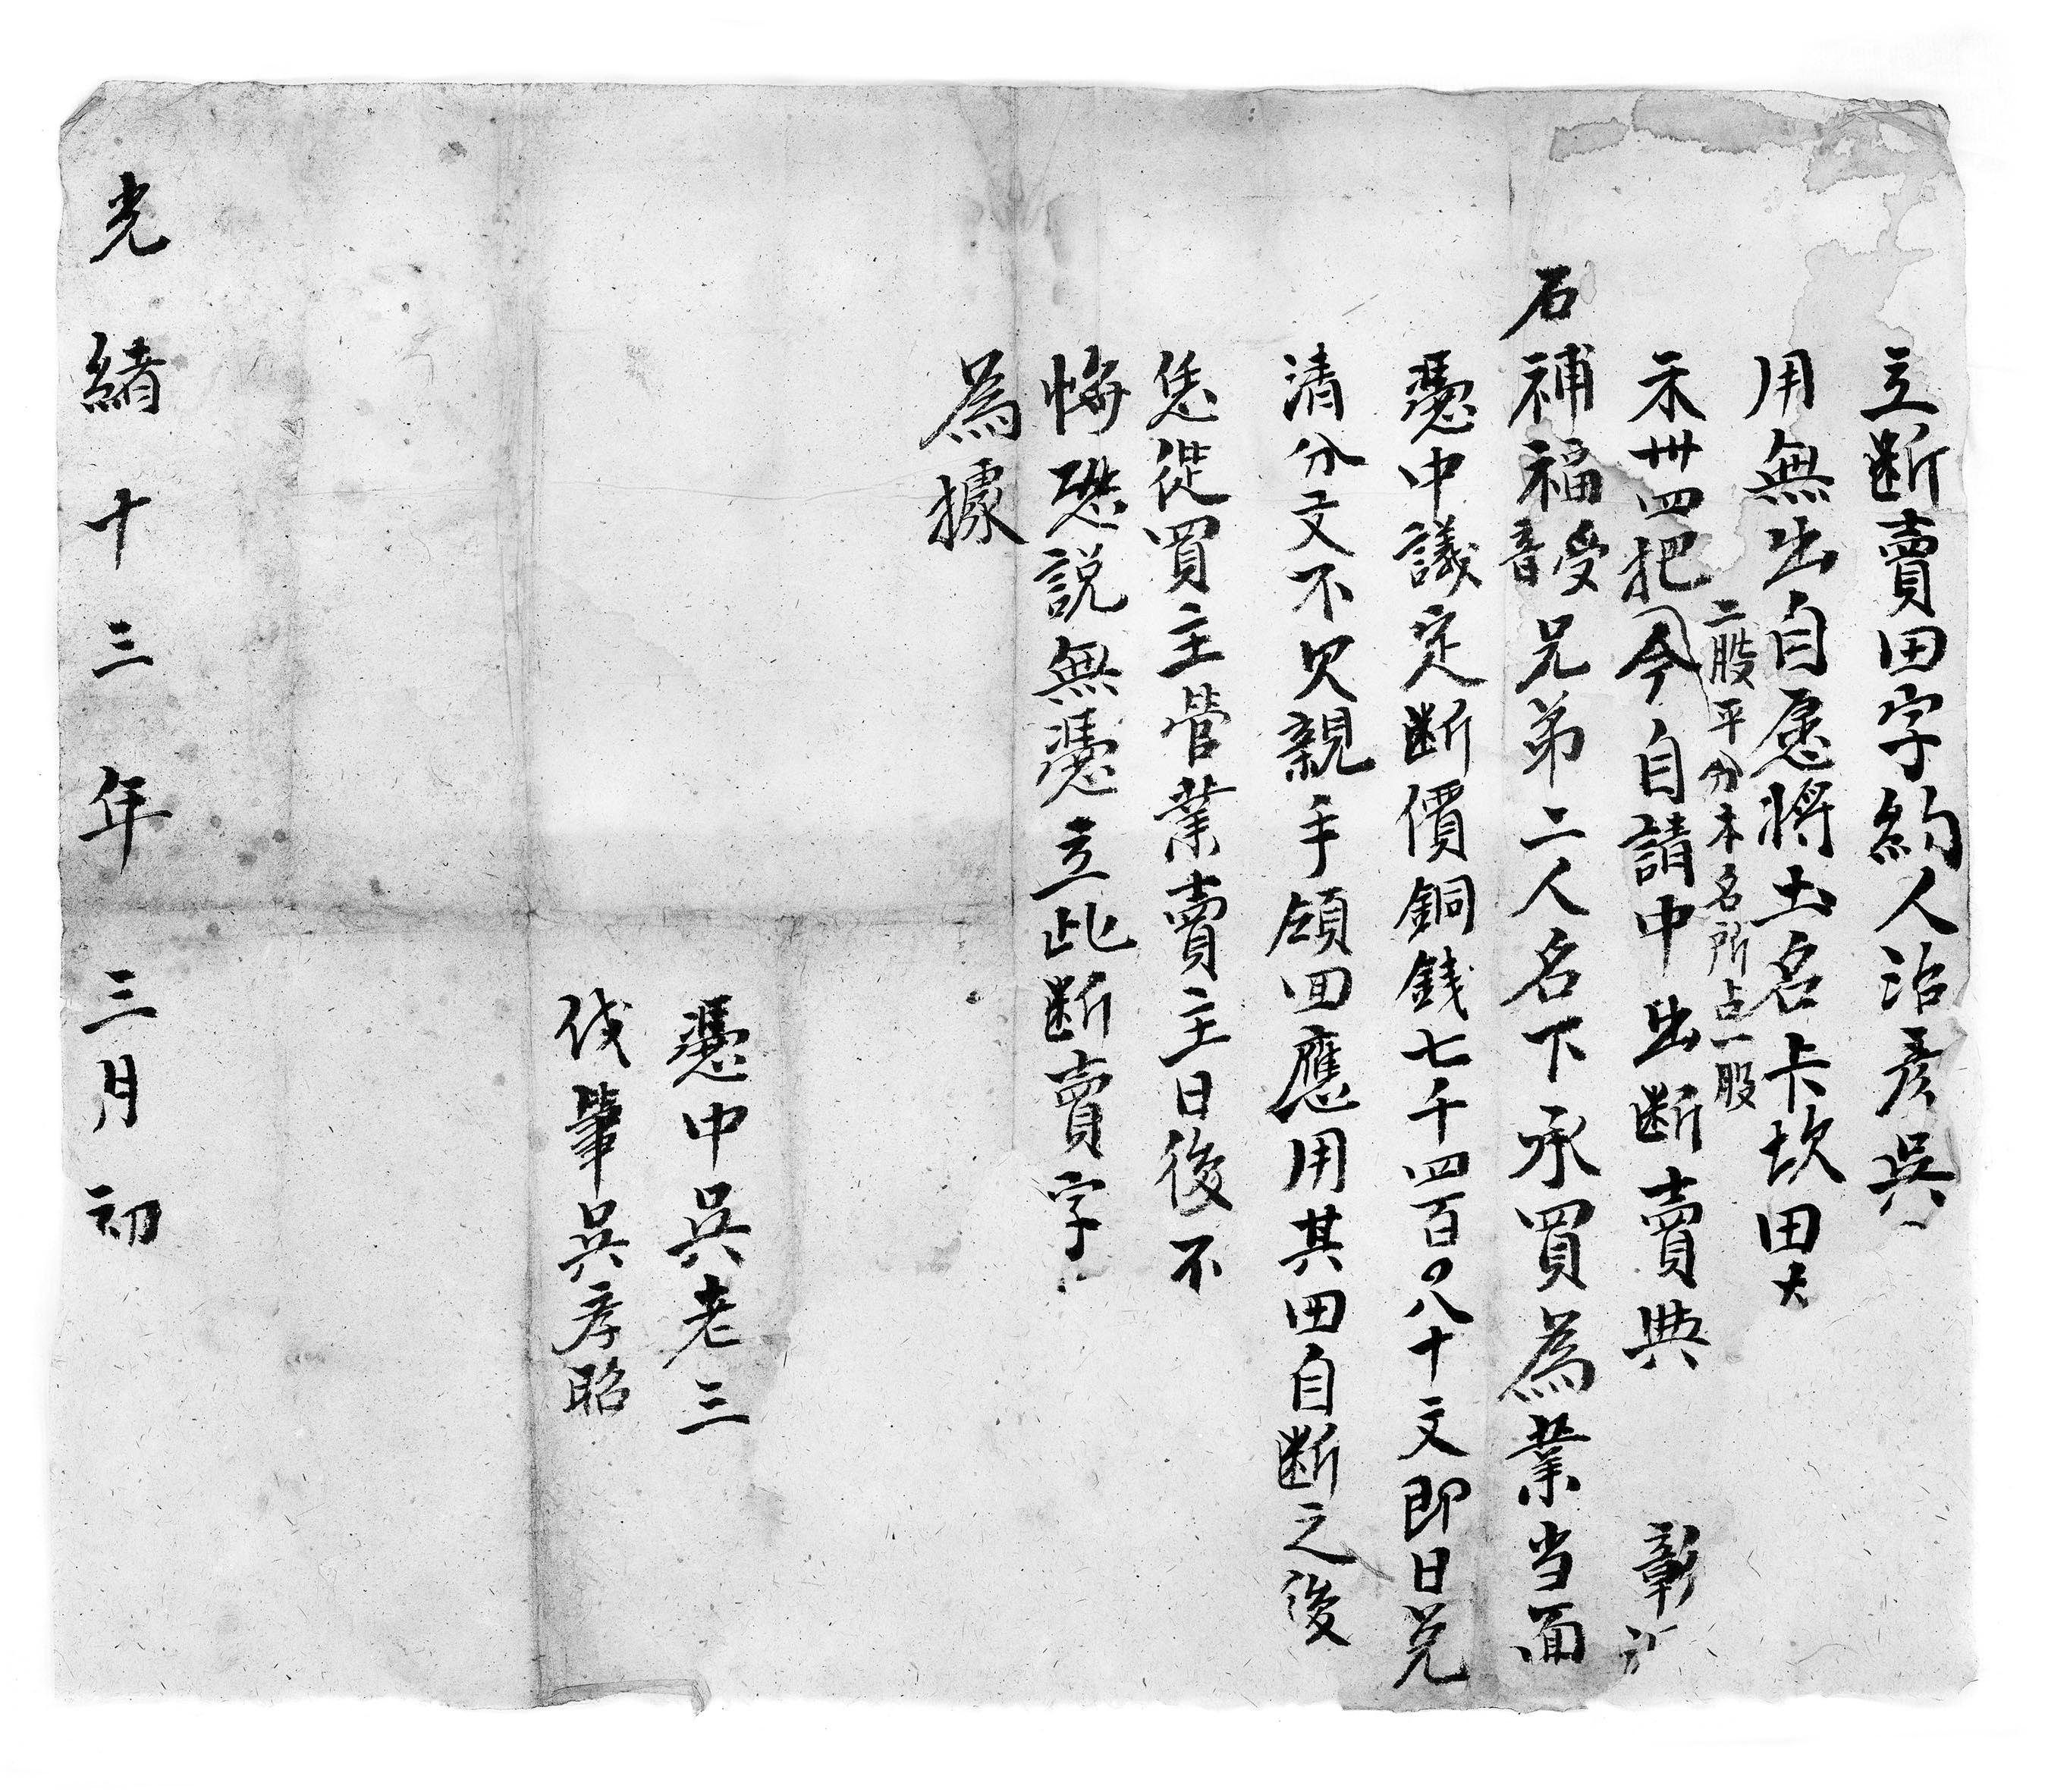 立断賣田字約人治彦吳
用無出自愿將土名卡坎田大
二股平分本名所占一股
禾卅四把今自請中出断賣典 彰
石補福音受兄弟二人名下承買為業当面
憑中議定断價銅錢七千四百〇八十文即日兑
清分文不欠親手領回應用其田自断之後
恁從買主管業賣主日後不
悔恐説無憑立此断賣字
為據
憑中吳老三
伐筆吳孝昭
光緒十三年三月初